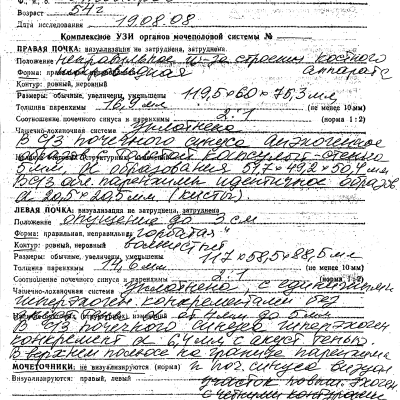 Возраст 57 г
Дата исследования 19.08.08
Комплексное УЗИ органов мочеполовой системы №
ПРАВАЯ ПОЧКА: визуализация не затруднена, затруднена
Положение неправильное из-за строения костного
Форма: аппарата
Контур: ровный, неровный
Размеры: обычные, увеличены, уменьшены 119,5х60х75,3мм
Толщина паренхимы 16,9мм (не менее 10мм)
Соотношение почечного синуса и паренхимы 2:1 (норма 1:2)
Чашечно-лохачная система уплотнена
В С/З почечного синуса анэхогенное
5мм, d образования 59,7х49,2х50,4мм
паренхимы идентичное образов
d 20,5х20,5мм (кисты).
ЛЕВАЯ ПОЧКА: визуализация не затруднена, затруднена
Положение опущение до 3 см
Форма: правильная, неправильная „горбатая"
Контур: ровный, неровный волнистый
Размеры: обычные, увеличены, уменьшены 117х58,5х88,5мм
Толщина паренхимы 19,6мм (не менее 10 мм)
Соотношение почечного синуса и паренхимы 2:1 (норма 1:2)
Чашечно-лохачная система уплотнена, с единичными
гиперэхоген. конкрементами без
от 4мм до 5мм
В С/З почечного синуса гиперэхоген
конкремент d 6,4мм с акуст. тенью.
В верхнем полюсе на границе паренхима
МОЧЕТОЧНИКИ: не визуализируются (норма) и поч. синуса визуал.
Визуализируются: правый, левый участок повыш. эхоген
с чёткими контурами